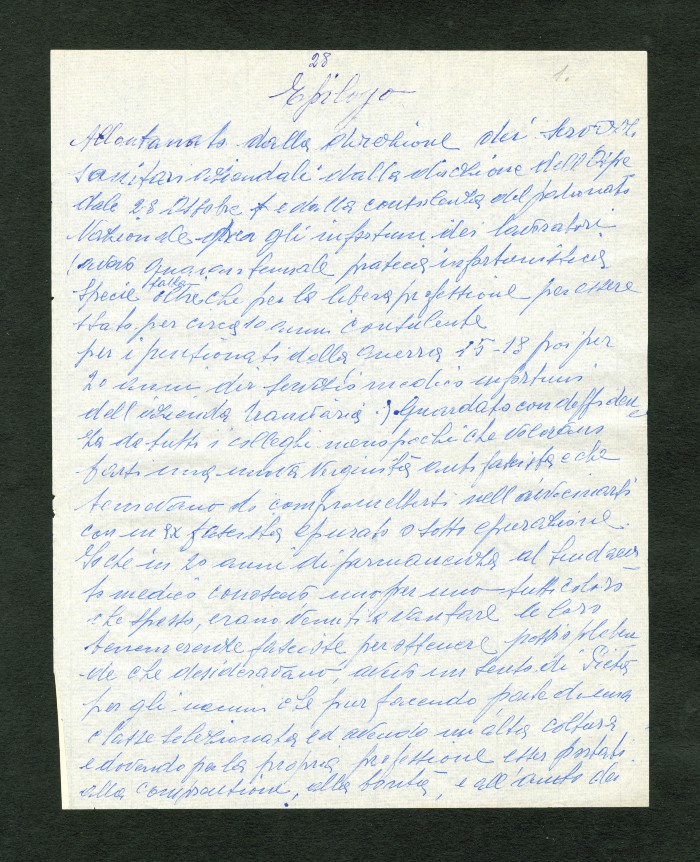 28
1.
Epilogo
Allontanato dalla direzione dei servizi
sanitari aziendali dalla direzione dell'Ospe
dale 28 Ottobre e dalla consulenza del patronato
Nazionale gli infortuni dei lavoratori
(avevo pratica infortunistica
specie stalla oltre che per la libera professione per essere
stato per circa 10 anni consulente
per i pensionati della guerra 15-18 poi per
20 anni dir servizio medico infortuni
dell'azienda tranviaria.) Guardato con diffiden
za da tutti i colleghi meno pochi che volevano
farsi una nuova verginità antifascista e che
temevano di compromettersi nell'avvicinarsi
con un ex fascista epurato o sotto epurazione.
Io che in 20 anni di permanenza al sindaca
to medico conoscevo uno per uno tutti coloro
che spesso, erano venuti a vantare le loro
benemerenze fasciste per ottenere posti o preben
de che desideravano, avevo un senso di pietà
per gli uomini che pur facendo parte di una
classe selezionata ed avendo un'alta coltura
e dovendo per la propria professione esser portati
alla comprensione, alla bontà, e all'aiuto dei